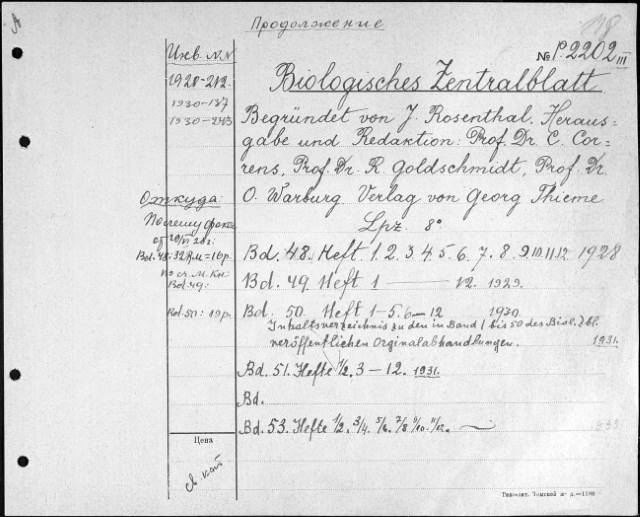 Продолжение
Инв. №№
1928-212.
1930-187
1930-243
№ P.2202 III
Biologisches Zentralblatt
Begründet von J. Rosenthal. Heraus-
gabe und Redaktion: Prof. Dr. C. Cor-
rens, Prof. Dr. R. Goldschmidt, Prof. Dr.
O. Warburg. Verlag von Georg Thieme
Lpz. 8°
Откуда:
По счету
Bd. 48: 32 R.M = 16 р.
Bd. 49:
Bd. 50: 19 р.
Bd. 48. Heft 1. 2. 3. 4. 5. 6. 7. 8. 9. 10. 11. 12 1928
Bd. 49 Heft 1 — 12. 1929.
Bd. 50. Heft 1-5. 6-12 1930.
Inhaltsverzeichnis zu den in Band 1 bis 50 des Biol. Zbl.
veröffentlichen Orginalabhandlungen. 1931.
Bd. 51. Hefte 1/2, 3 — 12. 1931.
Bd.
Bd. 53. Hefte 1/2. 3/4. 5/6. 7/8 9/10. 11/12.
Цена
св. кат.